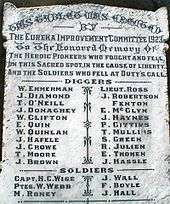 THIS TABLET WAS ERECTED
BY
THE EUREKA IMPROVEMENT COMMITTEE 1923
To The Honored Memory Of
THE HEROIC PIONEERS WHO FOUGHT AND FELL
ON THIS SACRED SPOT, IN THE CAUSE OF LIBERTY,
AND THE SOLDIERS WHO FELL AT DUTY'S CALL
DIGGERS
W. EMMERMAN LIEUT. ROSS
J. DIAMOND J. ROBERTSON
T. O'NEILL J. FENTON
J. DONAGHEY E. McGLYN
W. CLIFTON J. HAYNES
E. QUIN P. GITTINS
W. QUINLAN T. MULLINS
J. HAFELE S. GREEN
J. CROWE R. JULIEN
T. MOORE E. THONEN
J. BROWN J. HASSLE
SOLDIERS
CAPT. H.C. WISE J. WALL
PTES. W. WEBB F. BOYLE
M. RONEY J. HALL